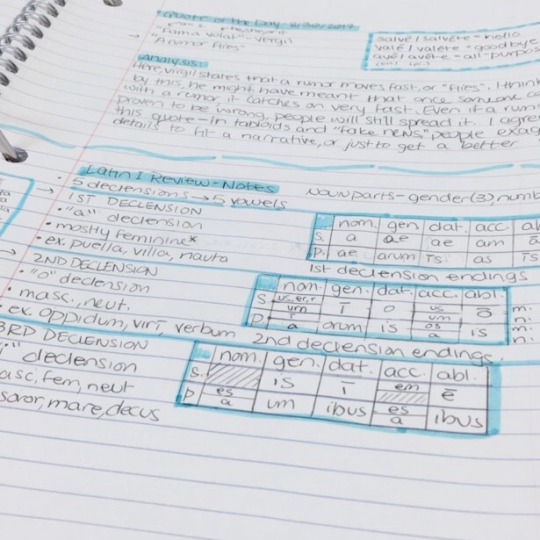 Quote of the Day
"Fama Volat" - Vergil
→ "A rumor flies"
salvē/salvēte = hello
valē/valēte = goodbye
avē/avēte = all-purpos
Analysis:
Here, Virgil states that a rumor moves fast, or "flies". I think
by this, he might have meant that once someone
with a rumor, it catches on very fast. Even if a rum
proven to be wrong, people will still spread it. I agre
this quote - in tabloids and "fake news" people exag
details to fit a narrative, or just to get a better
Latin I Review - Notes
• 5 declensions → 5 vowels
noun parts - gender(3), numb
1ST DECLENSION
• "a" declension
• mostly feminine*
• ex. puella, villa, nauta
nom. gen. dat. acc. abl
S. a ae ae am ā
P. ae arum īs as īs
1st declension endings
→ 2ND DECLENSION
• "o" declension
• masc., neut.
• ex. oppidum, virī, verbum
nom. gen. dat. acc. abl.
S. us, er, ir um ī o us um ō
P. ī a orum is os a is
m.
m.
n.
2nd declension endings.
3RD DECLENSION
"i" declension
asc, fem, neut
soror, mare, decus
nom. gen. dat. acc. abl.
S. is ī em e
P. es a um ibus es a ibus